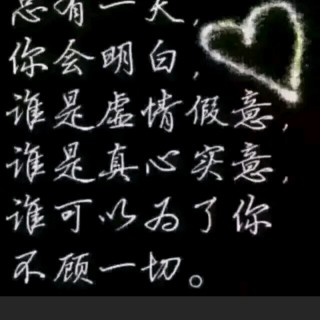 总有一天，
你会明白，
谁是虚情假意，
谁是真心实意，
谁可以为了你
不顾一切。